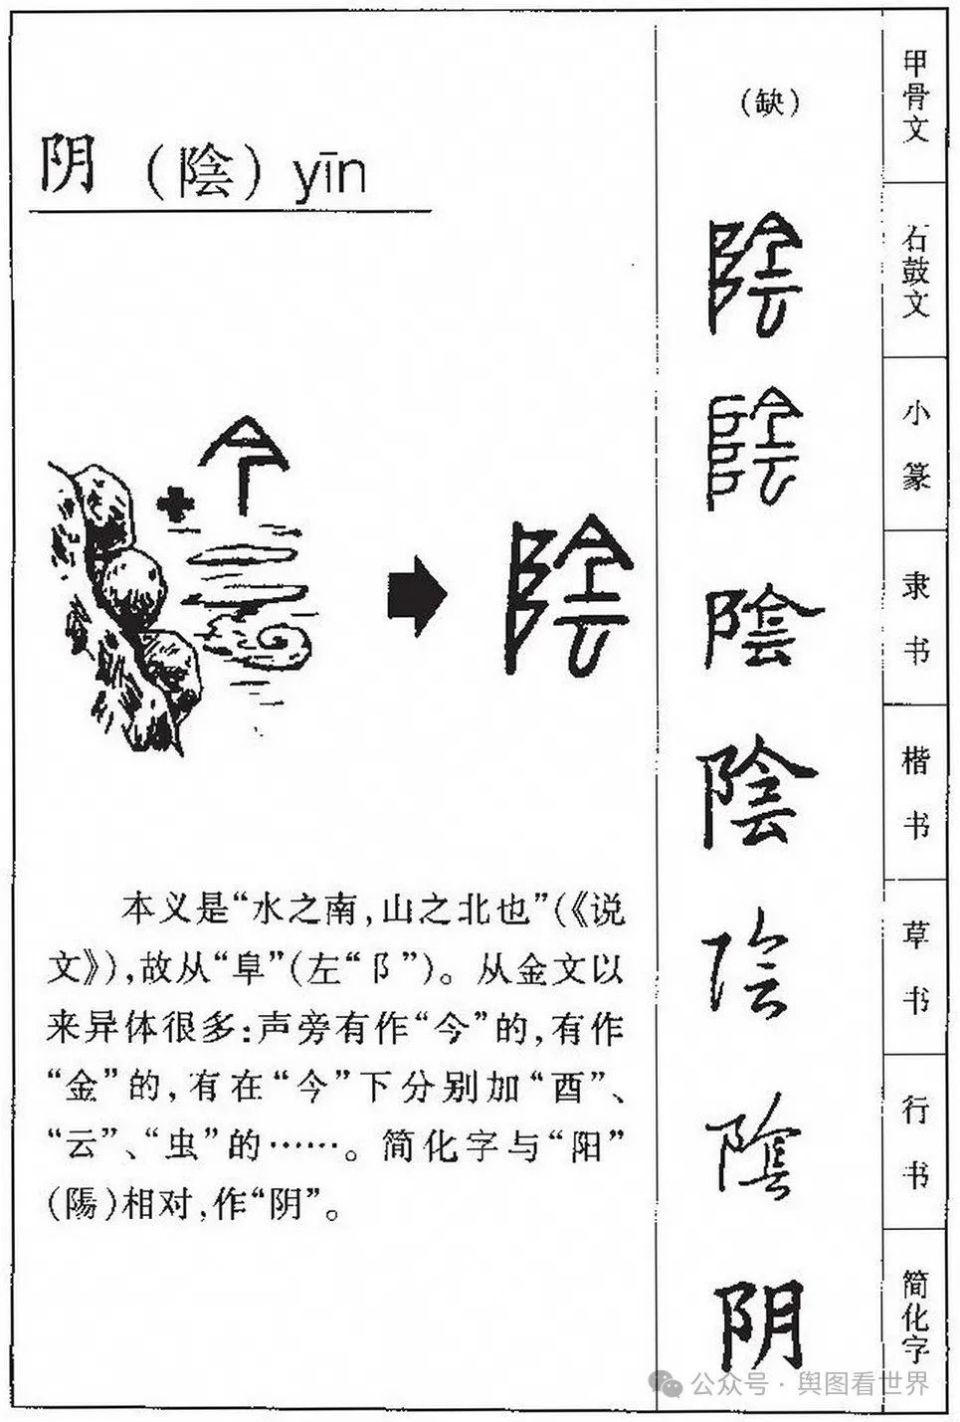 阴 (陰) yīn
本义是“水之南,山之北也”(《说
文》),故从“阜”(左“阝”)。从金文以
来异体很多:声旁有作“今”的,有作
“金”的,有在“今”下分别加“酉”、
“云”、“虫”的……。简化字与“阳”
(陽)相对,作“阴”。
今
陰
(缺) 甲骨文
陰 石鼓文
陰 小篆
陰 隶书
陰 楷书
陰 草书
陰 行书
阴 简化字
公众号·舆图看世界